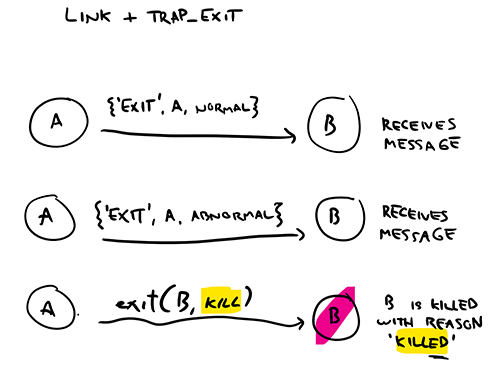 LINK + TRAP_EXIT
A
{'EXIT', A, NORMAL}
B
RECEIVES
MESSAGE
A
{'EXIT', A, ABNORMAL}
B
RECEIVES
MESSAGE
A
exit(B, KILL)
B
B IS KILLED
WITH REASON
'KILLED'